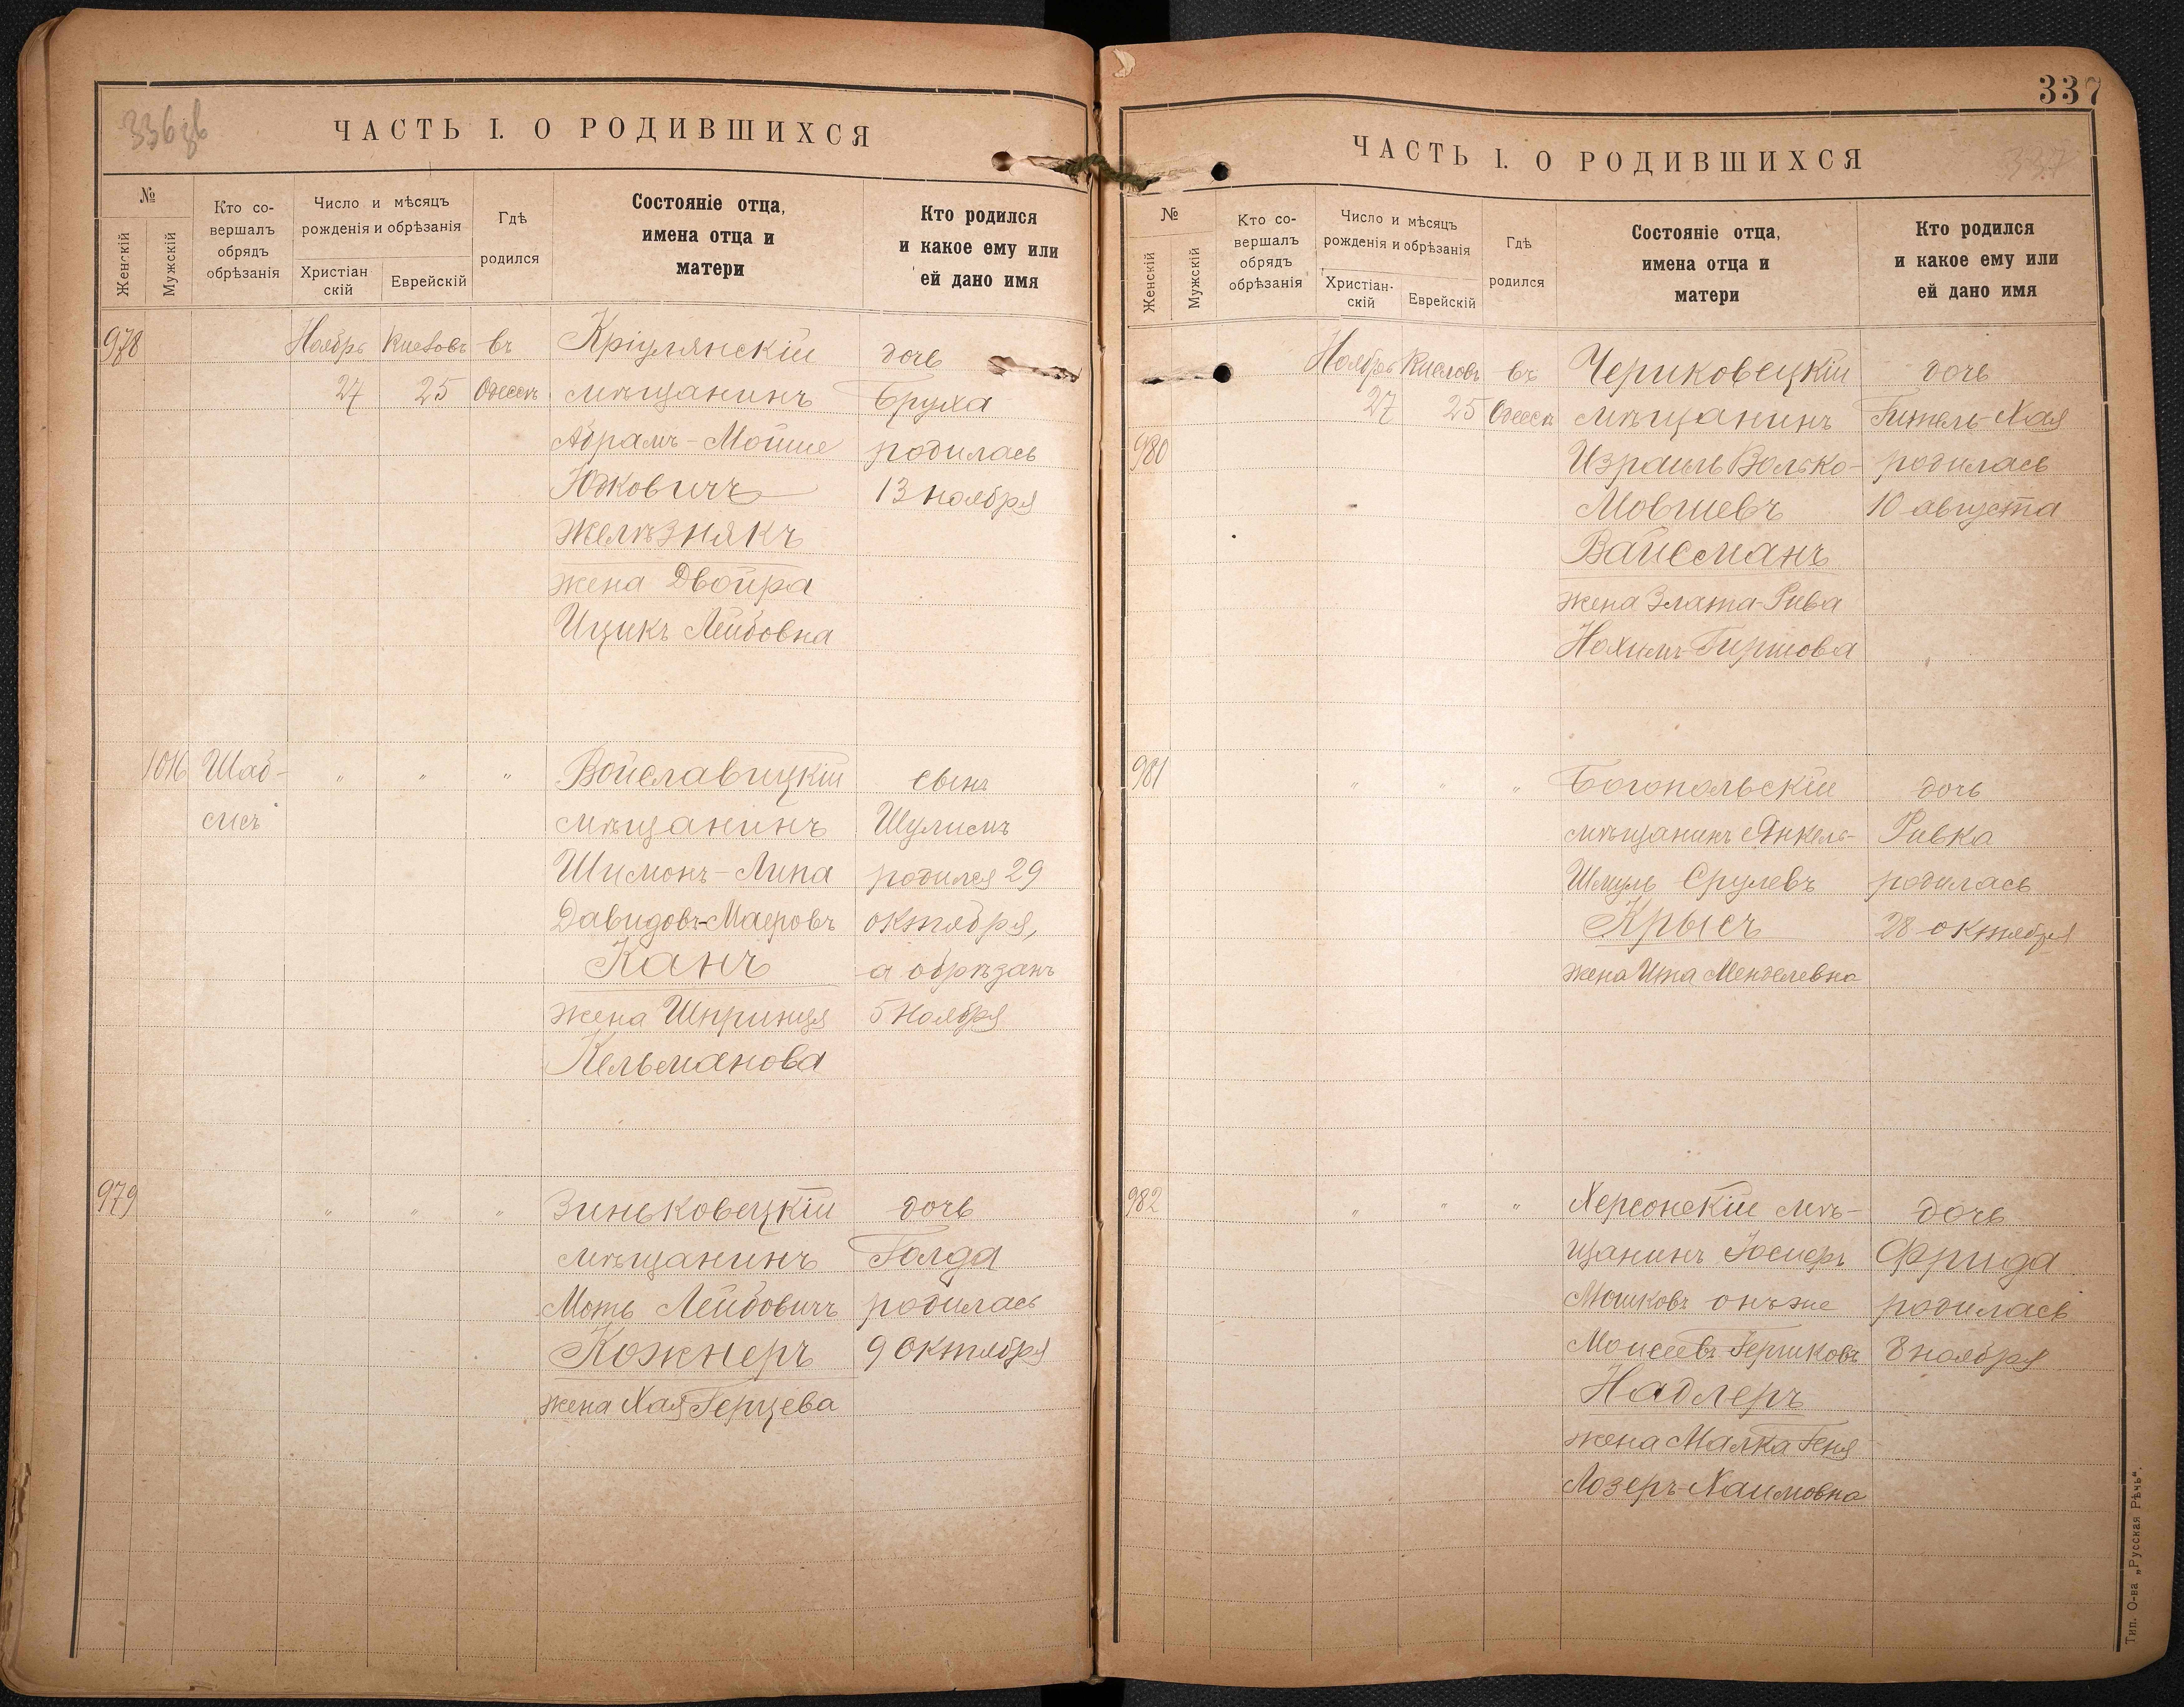 336 зв
ЧАСТЬ I. О РОДИВШИХСЯ
№
Женскій
Мужскій
Кто со-
вершалъ
обрядъ
обрѣзанія
Число и мѣсяцъ
рожденія и обрѣзанія
Христіан
скій
Еврейскій
Гдѣ
родился
Состояніе отца,
имена отца и
матери
Кто родился
и какое ему или
ей дано имя
978 Ноябрь Кислевъ въ Кріулянскій дочь
27 25 Одессѣ мѣщанинъ Бруха
Абрамъ-Мойше родилась
Юдковичъ 13 ноября
Желѣзнякъ
жена Двойра
Ицикъ Лейбовна
1016 Шаб- " " " Войславицкій сынъ
сисъ мѣщанинъ Шулимъ
Шимонъ-Липа родился 29
Давидовъ-Маеровъ октября,
Канъ а обрѣзанъ
жена Шпринця 5 Ноября
Кельманова
979 " " " Зиньковецкій дочь
мѣщанинъ Голда
Моть Лейбовичъ родилась
Кожнеръ 9 Октября
жена Хая Герцева
337
ЧАСТЬ I. О РОДИВШИХСЯ
337
№
Женскій
Мужскій
Кто со-
вершалъ
обрядъ
обрѣзанія
Число и мѣсяцъ
рожденія и обрѣзанія
Христіан-
скій
Еврейскій
Гдѣ
родился
Состояніе отца,
имена отца и
матери
Кто родился
и какое ему или
ей дано имя
Ноябрь Кислевъ въ Чериковецкій дочь
27 25 Одессѣ мѣщанинъ Гитель-Хая
980 Израиль Волько- родилась
Мовшевъ 10 августа
Вайсманъ
жена Злата-Рива
Нохимъ-Гиршова
981 " " " Богопольскій дочь
мѣщанинъ Янкель- Ривка
Шмуль Срулевъ родилась
Крысъ 28 октября
жена Ита Менделевна
982 " " " Херсонскій мѣ- дочь
щанинъ Іосифъ Фрида
Мошковъ онъ же родилась
Моисеевъ-Гершковъ 8 ноября
Надлеръ
жена Малка Геня
Лозеръ-Хаимовна
Тип. О-ва „Русская Рѣчь“.